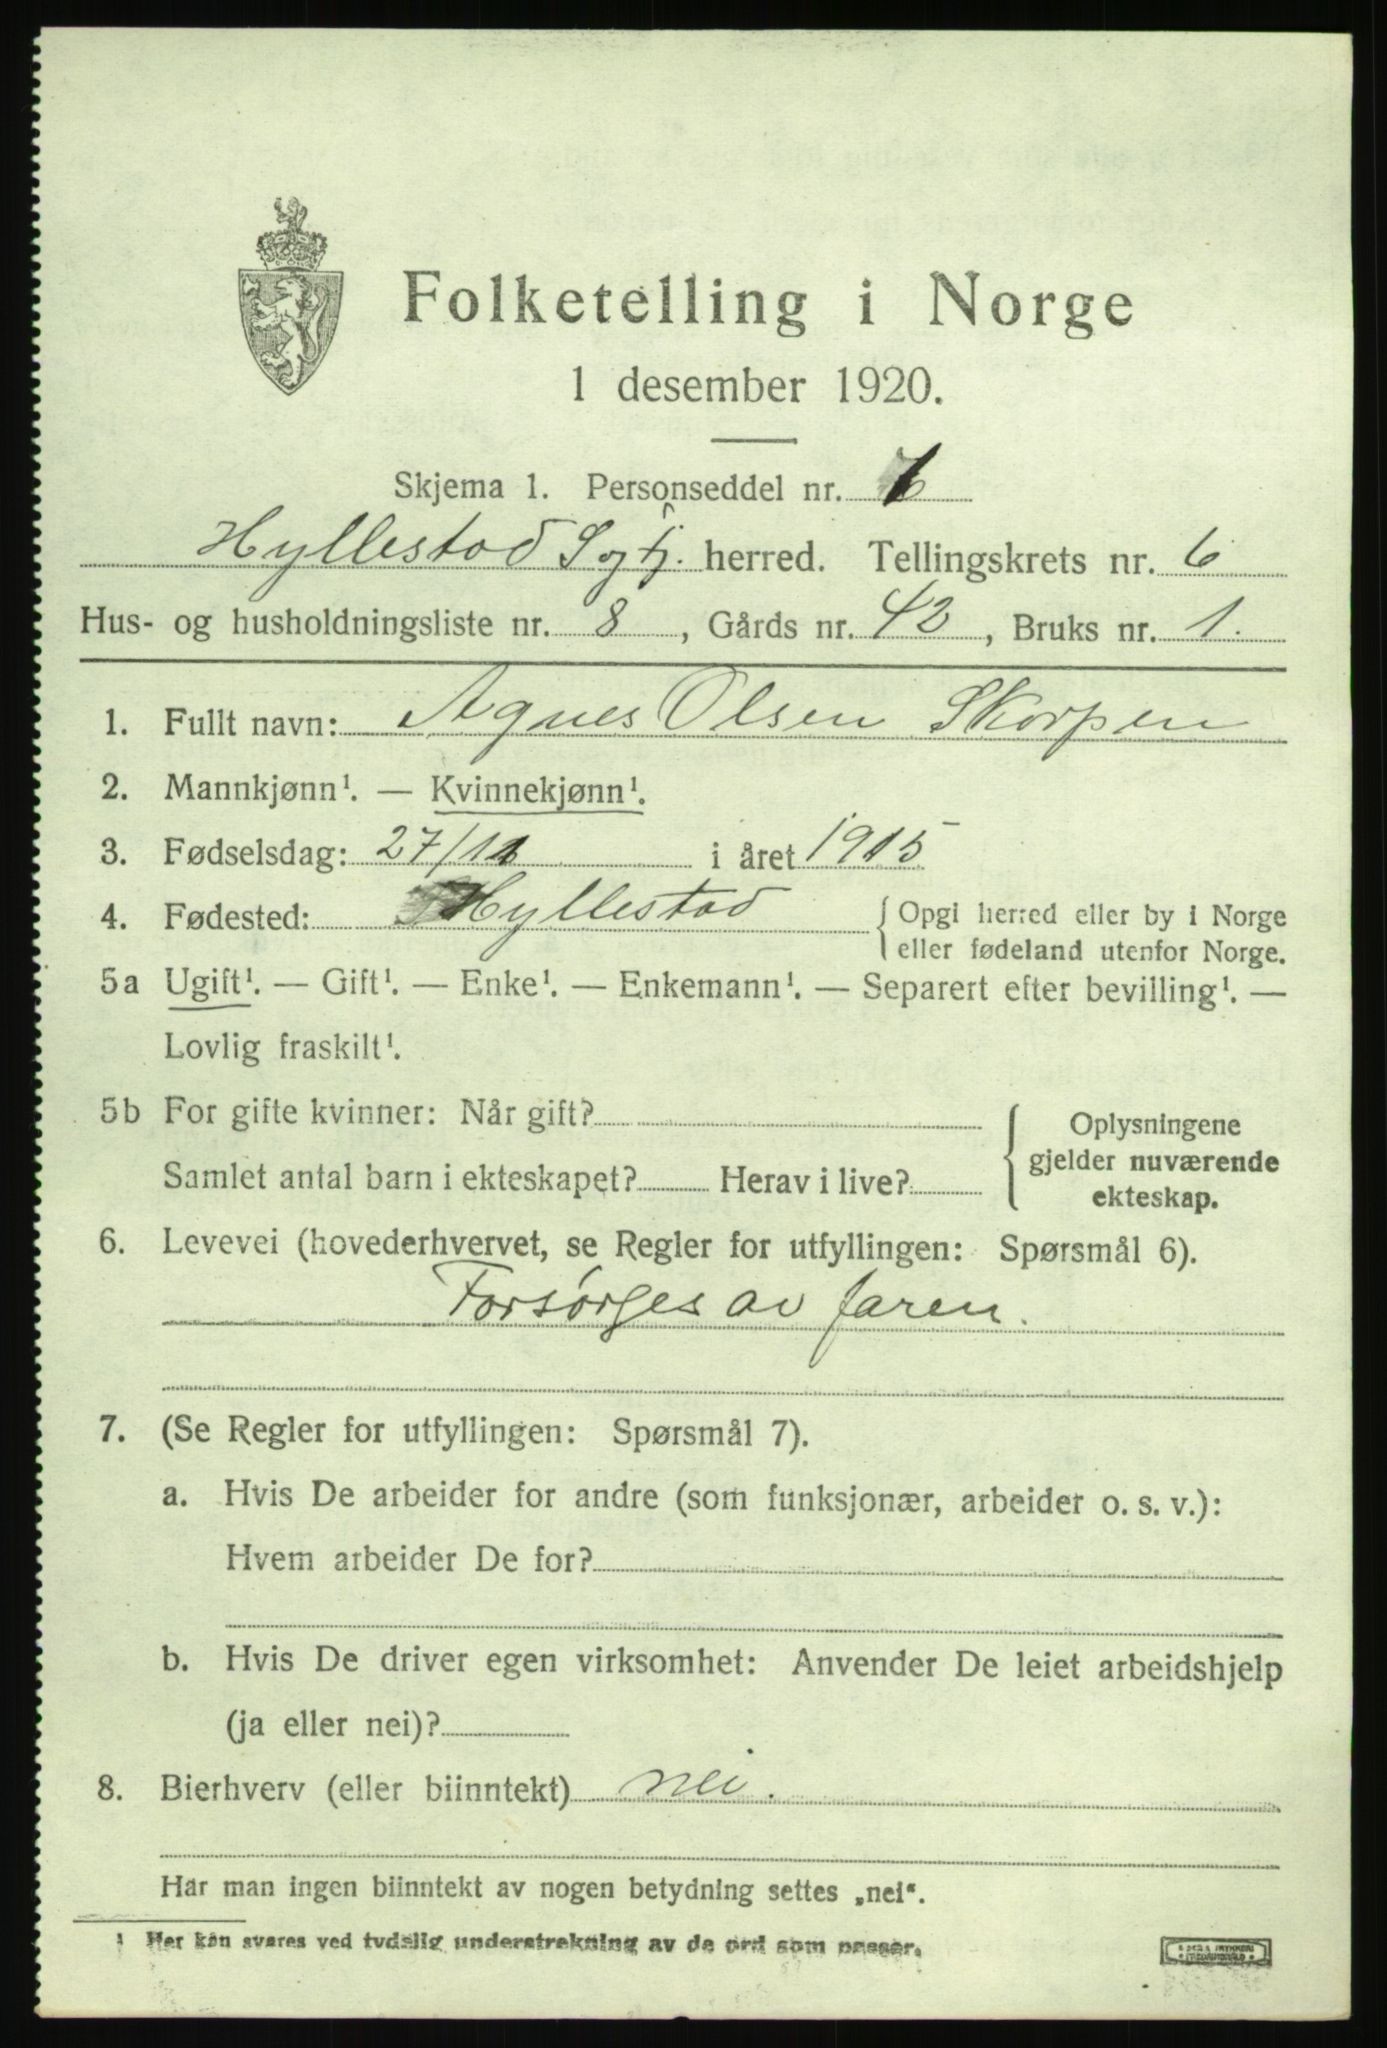 Folketelling i Norge
1 desember 1920.
Skjema 1. Personseddel nr.
Hyllestad Sogfj. herred. Tellingskrets nr. 6
Hus- og husholdningsliste nr. 8, Gårds nr. 42, Bruks nr. 1.
1. Fullt navn: Agnes Olsen Skorpen
2. Mannkjønn¹. — Kvinnekjønn¹.
3. Fødselsdag: 27/11 i året 1915
4. Fødested: Hyllestad { Opgi herred eller by i Norge
eller fødeland utenfor Norge.
5a Ugift¹. — Gift¹. — Enke¹. — Enkemann¹. — Separert efter bevilling¹. —
Lovlig fraskilt¹.
5b For gifte kvinner: Når gift? { Oplysningene
gjelder nuværende
ekteskap.
Samlet antal barn i ekteskapet? Herav i live?
6. Levevei (hovederhvervet, se Regler for utfyllingen: Spørsmål 6).
Forsørges av faren.
7. (Se Regler for utfyllingen: Spørsmål 7).
a. Hvis De arbeider for andre (som funksjonær, arbeider o. s. v.):
Hvem arbeider De for?
b. Hvis De driver egen virksomhet: Anvender De leiet arbeidshjelp
(ja eller nei)?
8. Bierhverv (eller biinntekt) nei.
Har man ingen biinntekt av nogen betydning settes „nei“.
¹ Her kan svares ved tydelig understrekning av de ord som passer.